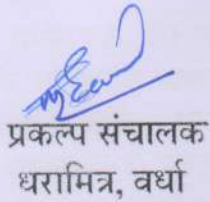 प्रकल्प संचालक
धरामित्र, वर्धा